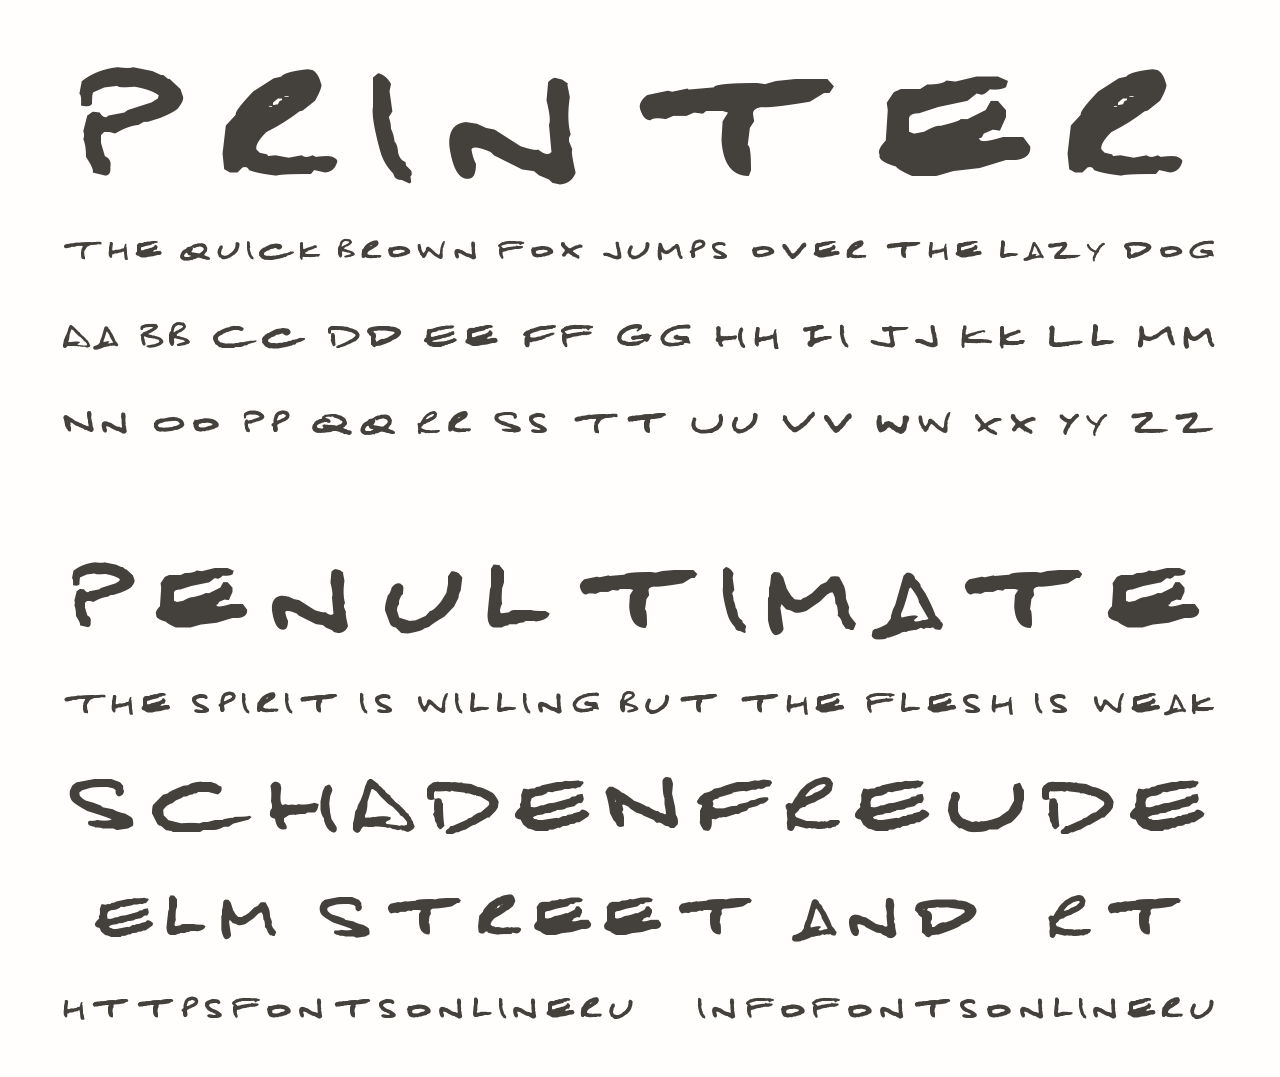 PRINTER
THE QUICK BROWN FOX JUMPS OVER THE LAZY DOG
AA BB CC DD EE FF GG HH II JJ KK LL MM
NN OO PP QQ RR SS TT UU VV WW XX YY ZZ
PENULTIMATE
THE SPIRIT IS WILLING BUT THE FLESH IS WEAK
SCHADENFREUDE
ELM STREET AND RT
HTTPSFONTSONLINERU INFOFONTSONLINERU